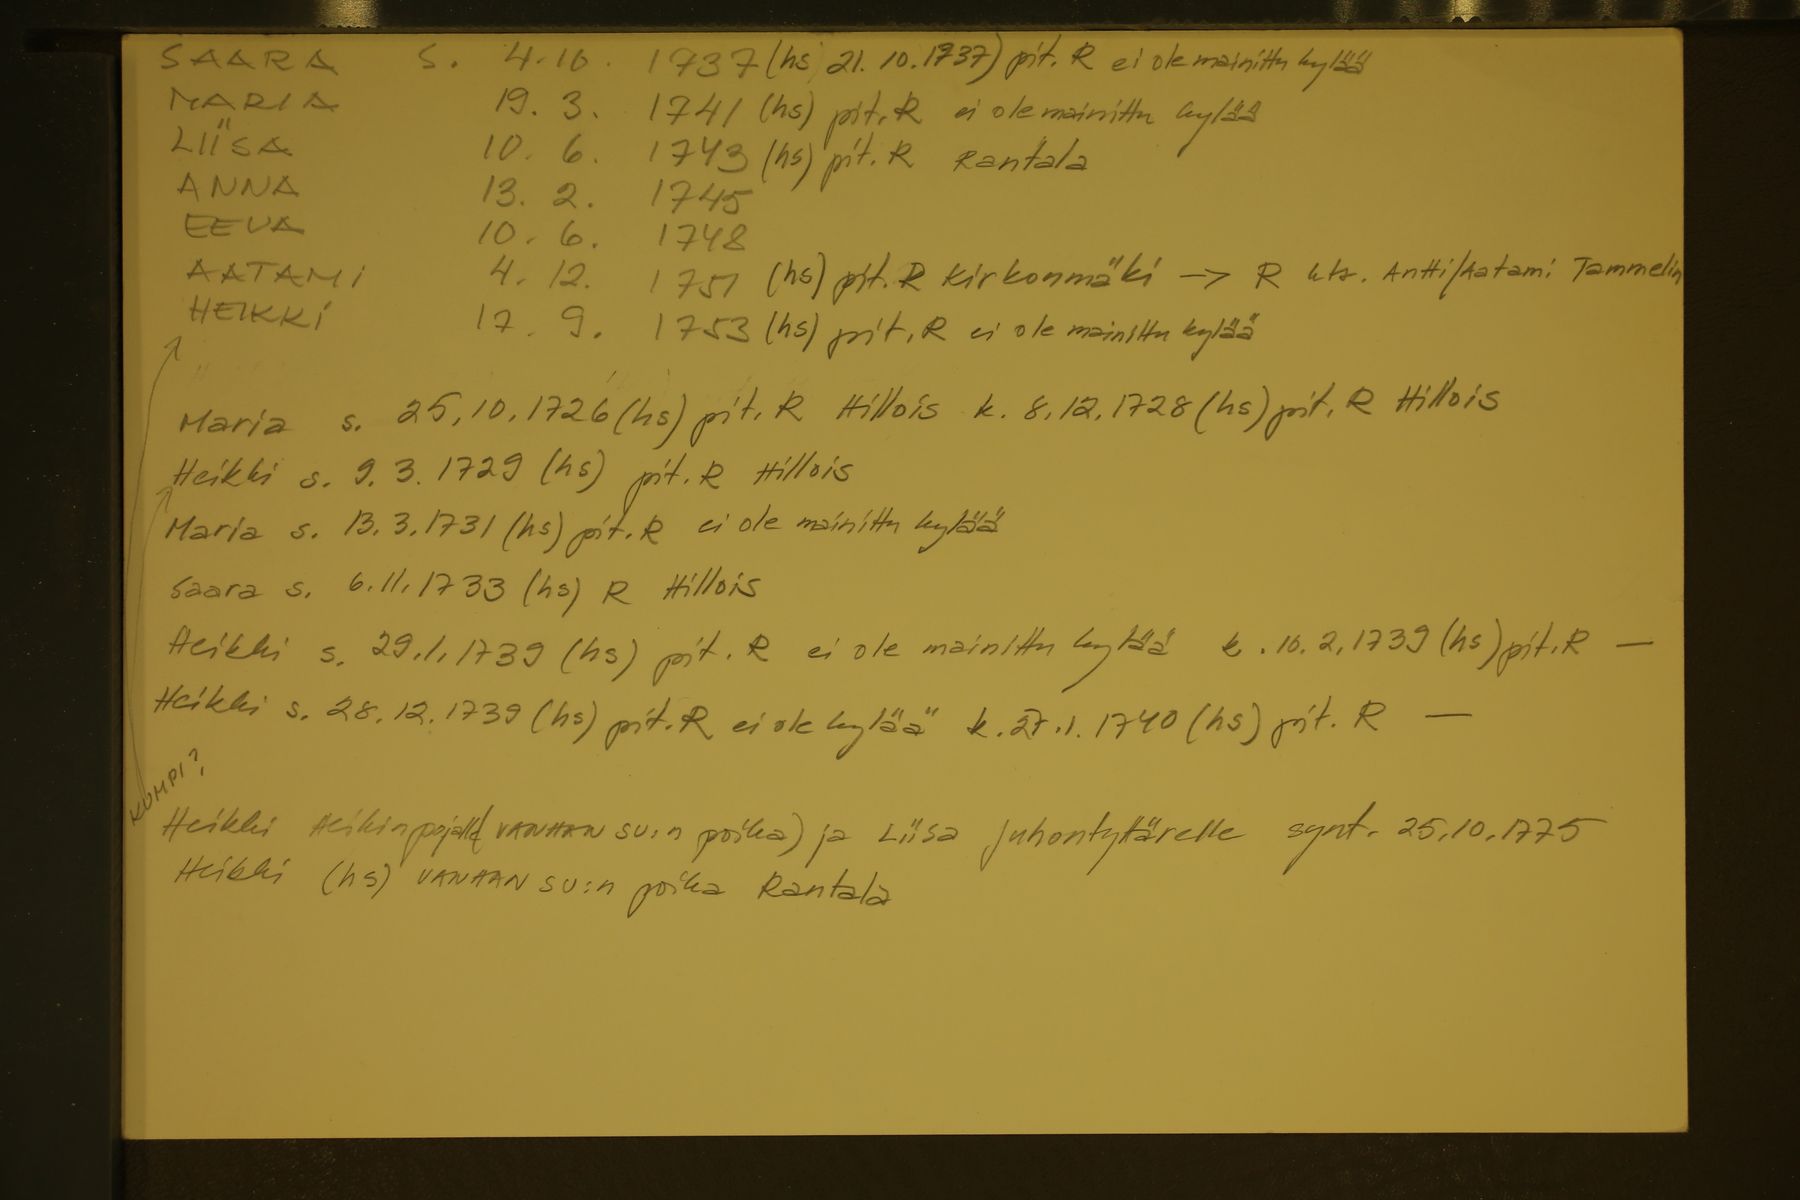 SAARA S. 4.10. 1737 (hs, 21.10.1737) pit. R ei ole mainittu kylää
MARIA 19. 3. 1741 (hs) pit. R ei ole mainittu kylää
LIISA 10. 6. 1743 (hs) pit. R Rantala
ANNA 13. 2. 1745
EEVA 10. 6. 1748
AATAMI 4. 12. 1751 (hs) pit. R Kirkonmäki → R kts. Antti/Aatami Tammelin
HEIKKI 17. 9. 1753 (hs) pit. R ei ole mainittu kylää
Maria s. 25.10.1726 (hs) pit. R Hillois k. 8.12.1728 (hs) pit. R Hillois
Heikki s. 9.3.1729 (hs) pit. R Hillois
Maria s. 13.3.1731 (hs) pit. R ei ole mainittu kylää
Saara s. 6.11.1733 (hs) R Hillois
Heikki s. 29.1.1739 (hs) pit. R ei ole mainittu kylää k. 10.2.1739 (hs) pit. R —
Heikki s. 28.12.1739 (hs) pit. R ei ole kylää k. .1.1740 (hs) pit. R —
KUMPI?
Heikki Heikinpojalle (VANHAN SU:n poika) ja Liisa Juhontyttärelle synt. 25.10.1775
Heikki (hs) VANHAN SU:n poika Rantala